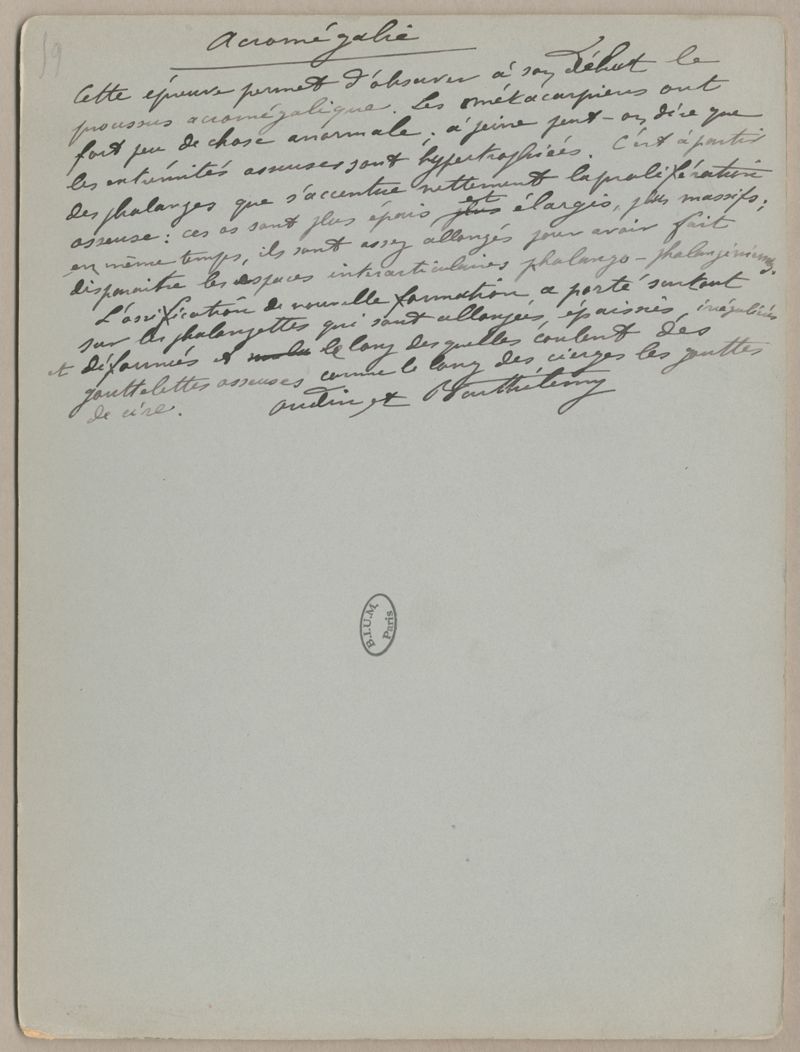 59
Acromégalie
Cette épreuve permet d'observer à son début le
processus acromégalique. Les métacarpiens ont
fort peu de chose anormale ; à peine peut-on dire que
les extrémités osseuses sont hypertrophiées. C'est à partir
des phalanges que s'accentue nettement la prolifération
osseuse : ces os sont plus épais et plus élargis, plus massifs ;
en même temps, ils sont assez allongés pour avoir fait
disparaitre les espaces interarticulaires phalango-phalanginiens.
L'ossification de nouvelle formation a porté surtout
sur les phalangettes qui sont allongées, épaissies, irrégulières
et déformées et le long desquelles coulent des
gouttelettes osseuses comme le long des cierges les gouttes
de cire.
Oudin et Barthélemy
B.I.U.M
Paris